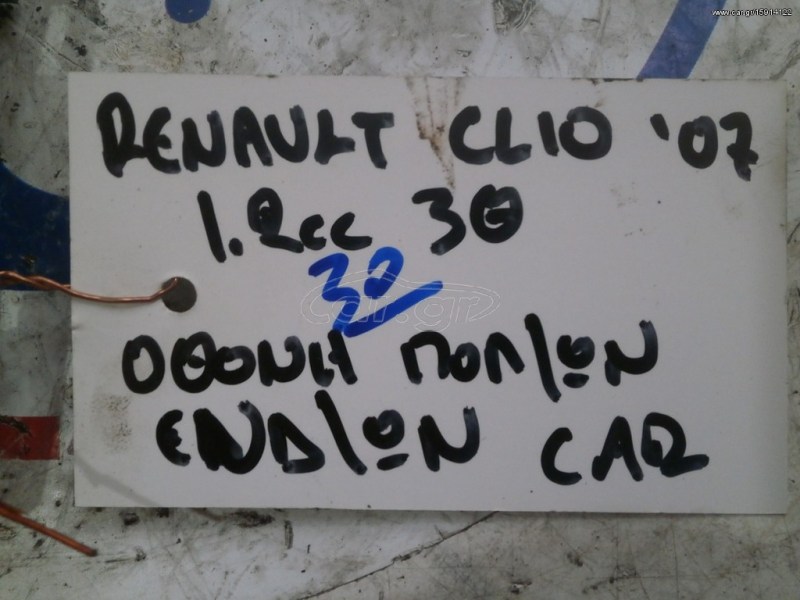 www.car.gr/15914122
RENAULT CLIO '07
1.2cc 3Θ
30
car.gr
ΟΘΟΝΗ ΠΟΛ/ΩΝ
ΕΝΔ/ΩΝ CAR